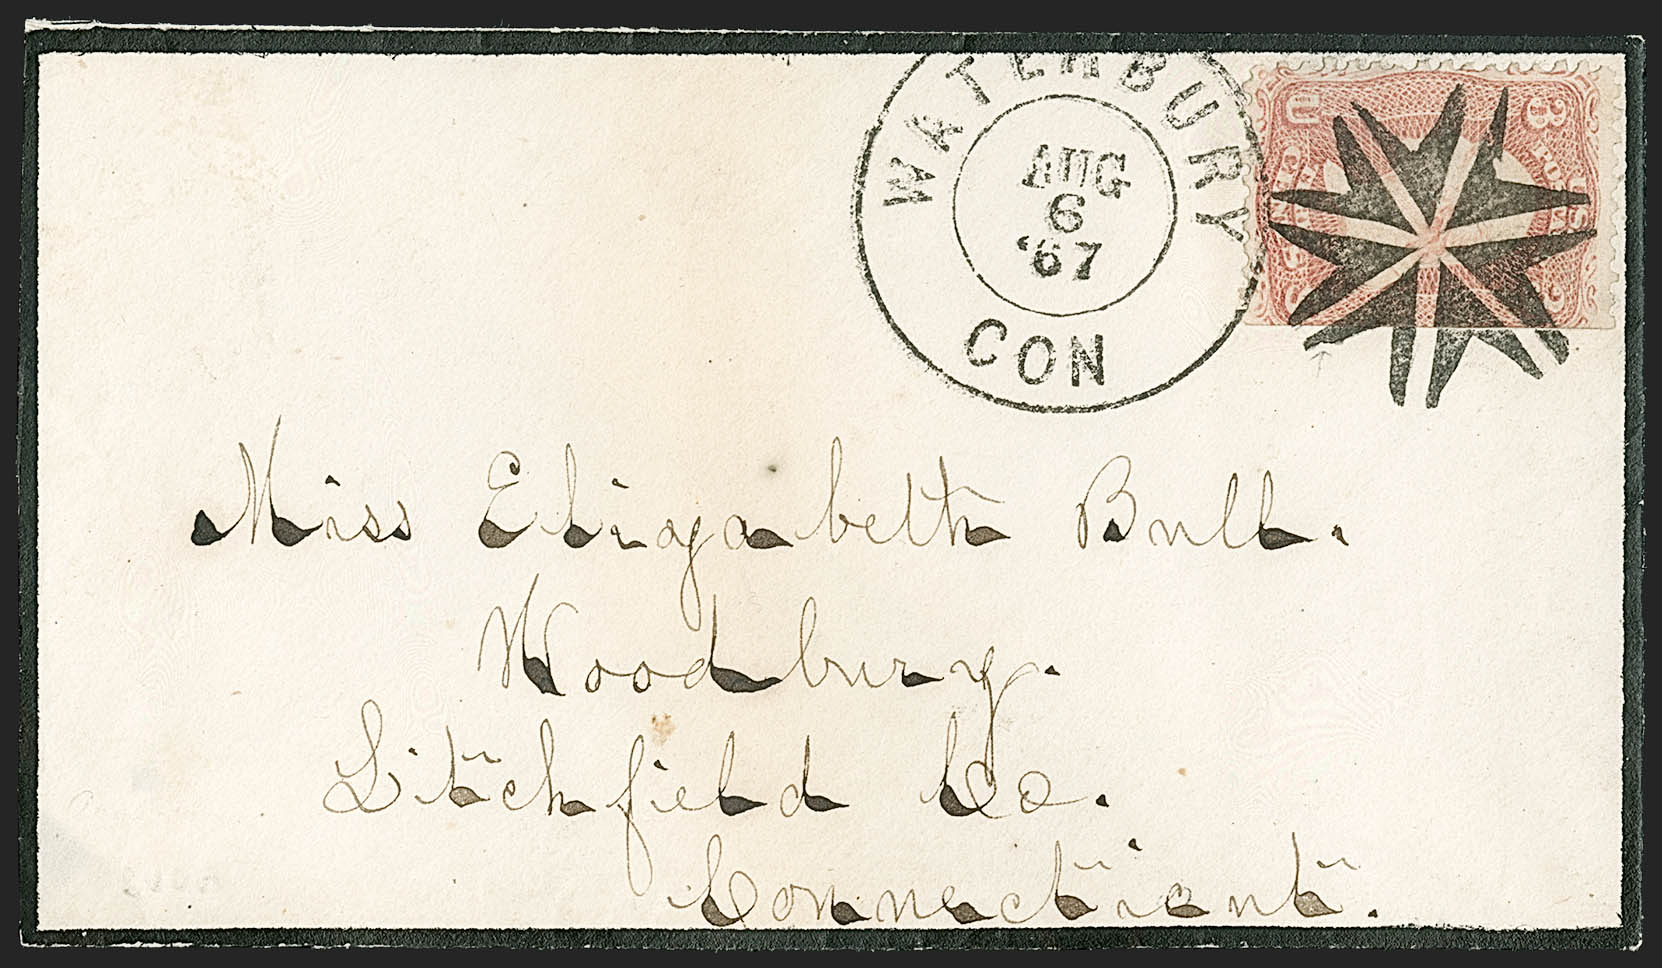 WATERBURY
AUG
6
'67
CON
U 3
CENTS POSTA
U.S.
Miss Elizabeth Bull.
Woodbury.
Litchfield Co.
Connecticut.